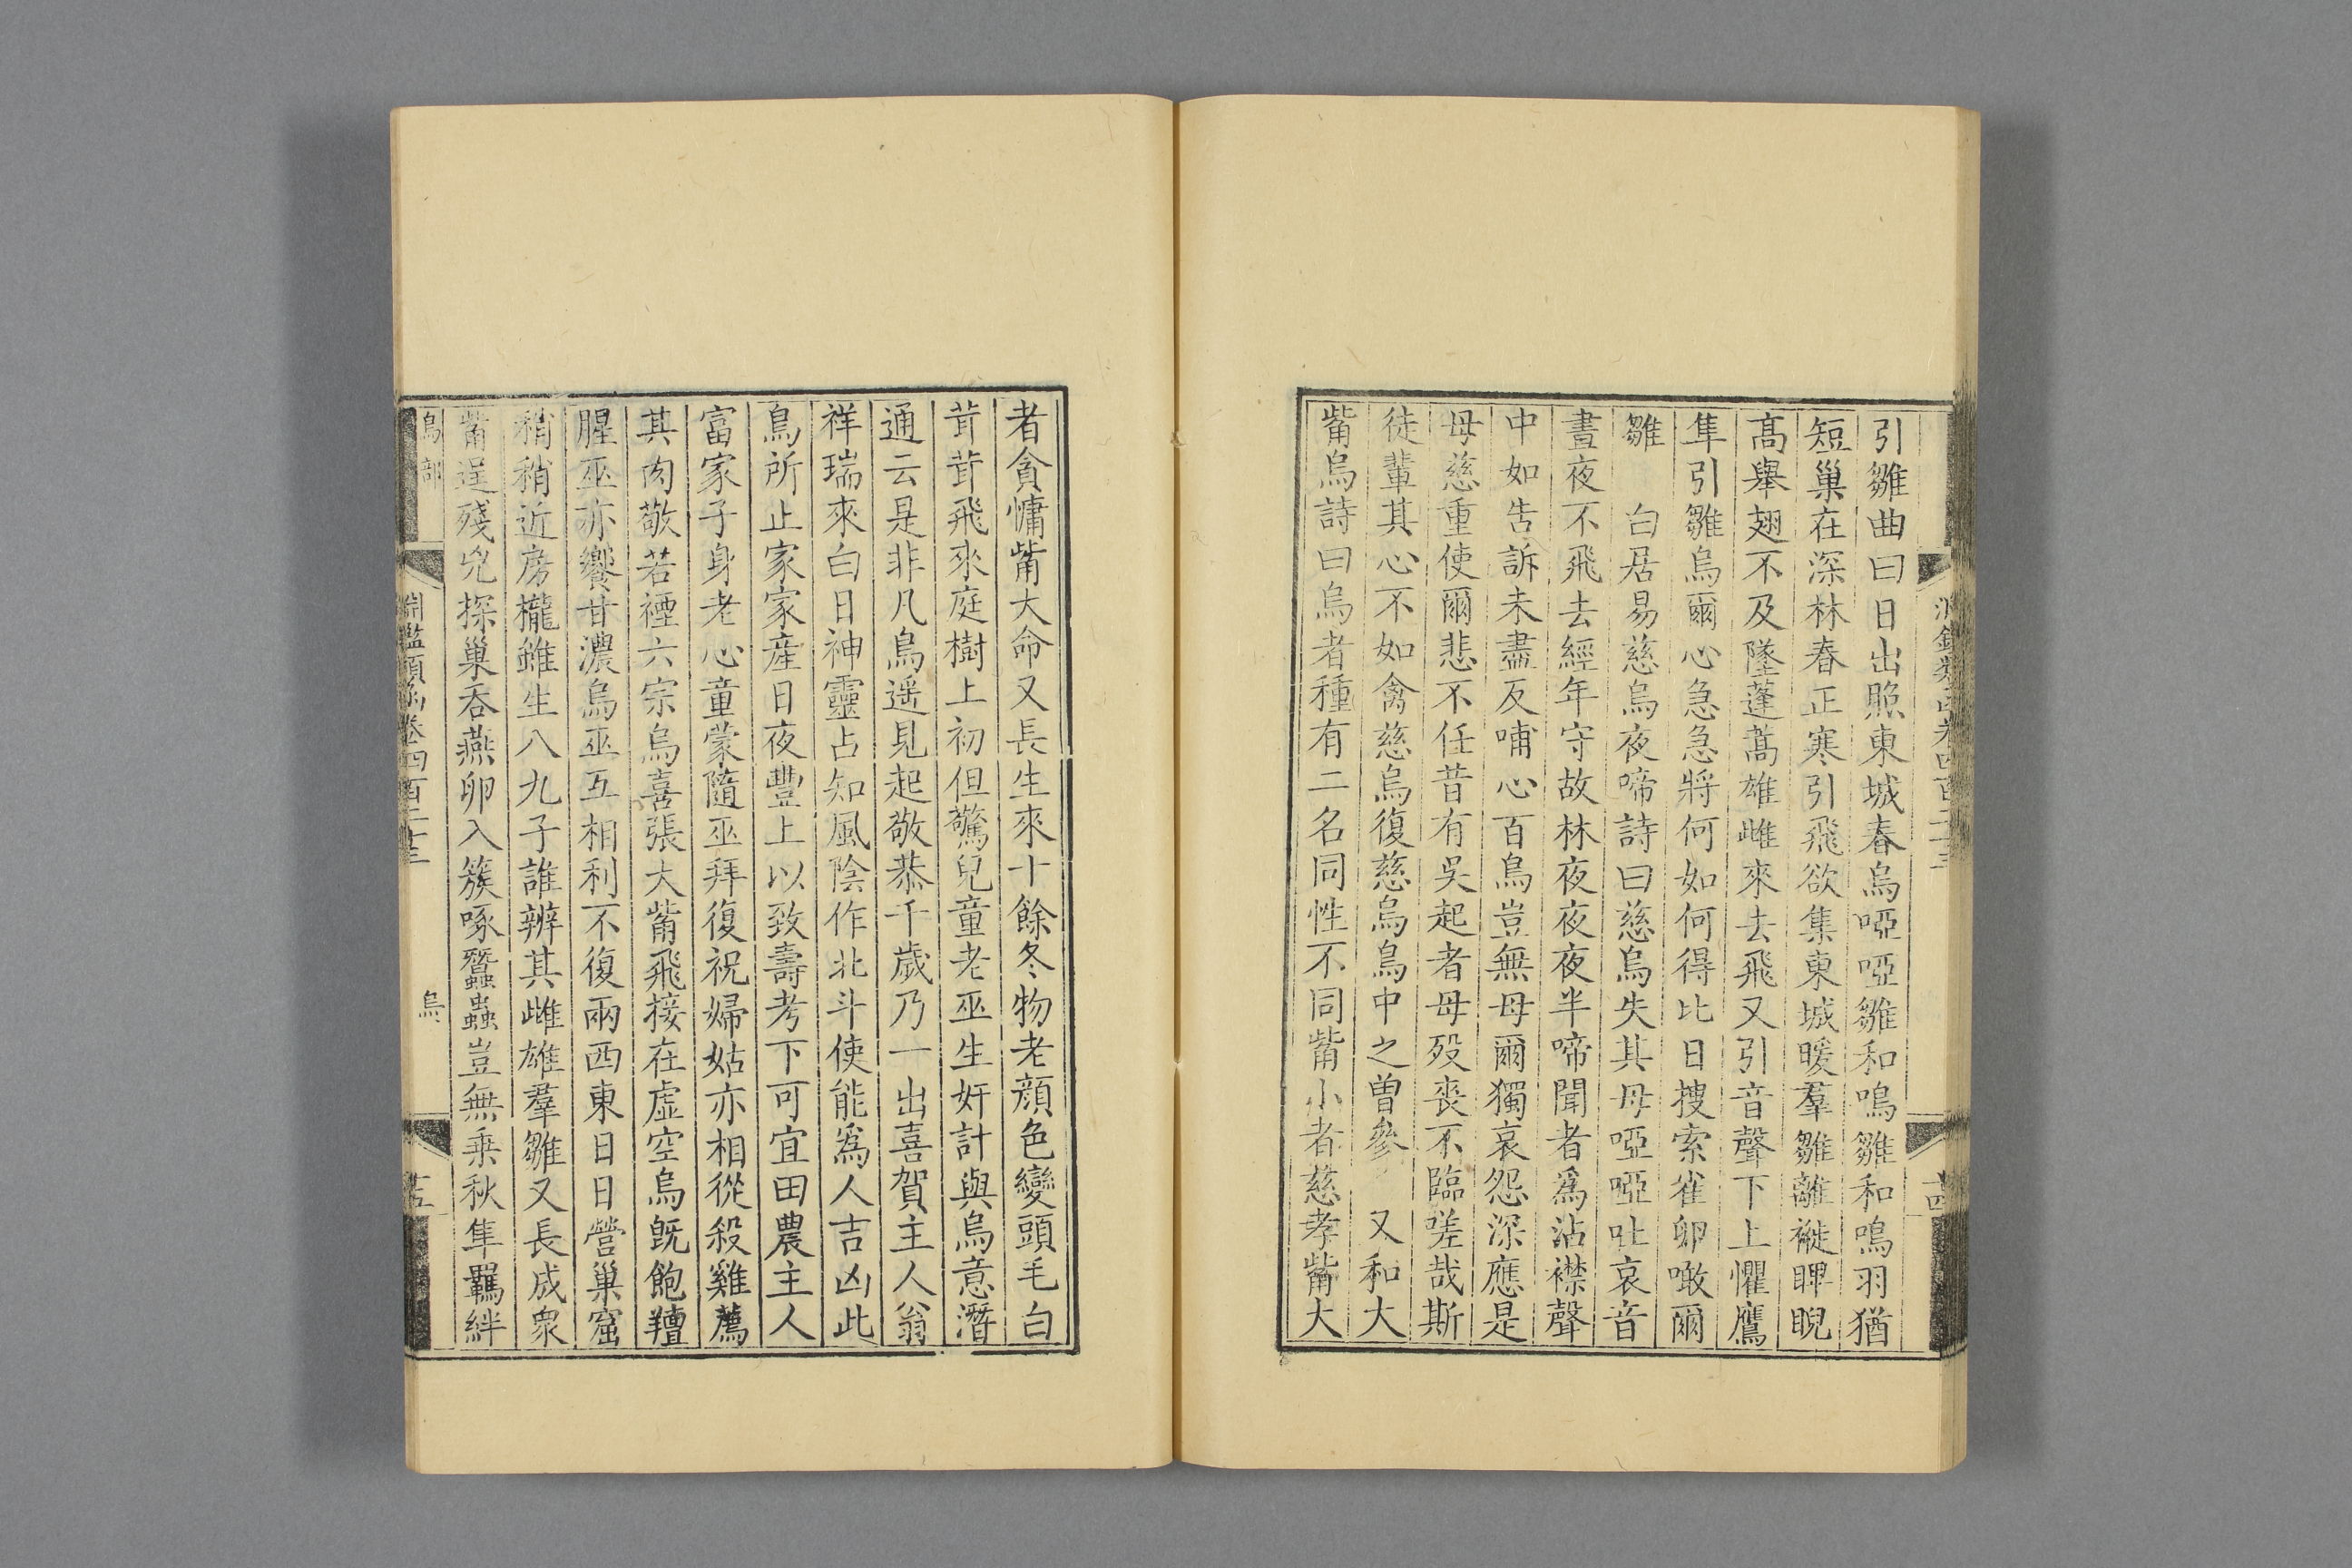 引雛曲曰日出照東城春烏啞啞雛和鳴雛和鳴羽猶
短巢在深林春正寒引飛欲集東城暖羣雛離褷睥睨
高舉翅不及墜蓬蒿雄雌來去飛又引音聲下上懼鷹
隼引雛烏爾心急急將何如何得比日搜索雀卵噉爾
雛　白居易慈烏夜啼詩曰慈烏失其母啞啞吐哀音
晝夜不飛去經年守故林夜夜夜半啼聞者爲沾襟聲
中如告訴未盡反哺心百鳥豈無母爾獨哀怨深應是
母慈重使爾悲不任昔有吳起者母歿喪不臨嗟哉斯
徒輩其心不如禽慈烏復慈烏鳥中之曾參　又和大
觜烏詩曰烏者種有二名同性不同觜小者慈孝觜大
者貪慵觜大命又長生來十餘冬物老顔色變頭毛白
茸茸飛來庭樹上初但驚兒童老巫生奸計與烏意潛
通云是非凡鳥遥見起敬恭千歲乃一出喜賀主人翁
祥瑞來白日神靈占知風陰作北斗使能爲人吉凶此
鳥所止家家產日夜豐上以致壽考下可宜田農主人
富家子身老心童蒙隨巫拜復祝婦姑亦相從殺雞薦
其肉敬若禋六宗烏喜張大觜飛接在虛空烏既飽羶
腥巫亦饗甘濃烏巫互相利不復兩西東日日營巢窟
稍稍近房櫳雖生八九子誰辨其雌雄羣雛又長成衆
觜逞殘兇探巢吞燕卵入簇啄蠶蟲豈無乗秋隼羈絆
鳥部
淵鑑類函卷四百二十三
烏
十五